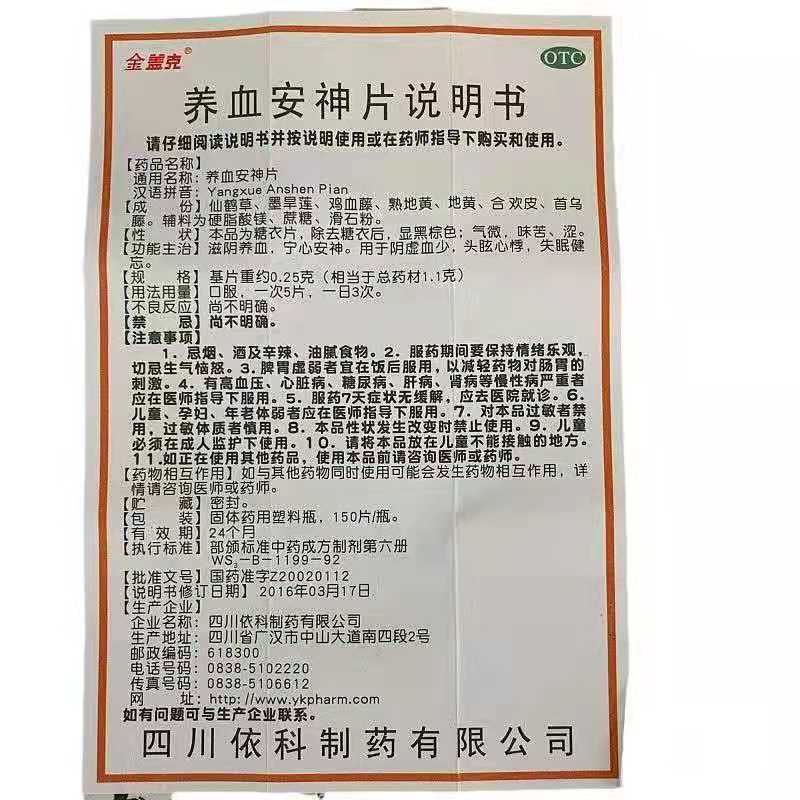 金盖克®
OTC
养血安神片说明书
请仔细阅读说明书并按说明使用或在药师指导下购买和使用。
【药品名称】
通用名称：养血安神片
汉语拼音：Yangxue Anshen Pian
【成　份】仙鹤草、墨旱莲、鸡血藤、熟地黄、地黄、合欢皮、首乌
藤。辅料为硬脂酸镁、蔗糖、滑石粉。
【性　状】本品为糖衣片，除去糖衣后，显黑棕色；气微，味苦、涩。
【功能主治】滋阴养血，宁心安神。用于阴虚血少，头眩心悸，失眠健
忘。
【规　格】基片重约0.25克（相当于总药材1.1克）
【用法用量】口服，一次5片，一日3次。
【不良反应】尚不明确。
【禁　忌】尚不明确。
【注意事项】
1．忌烟、酒及辛辣、油腻食物。2．服药期间要保持情绪乐观，
切忌生气恼怒。3．脾胃虚弱者宜在饭后服用，以减轻药物对肠胃的
刺激。4．有高血压、心脏病、糖尿病、肝病、肾病等慢性病严重者
应在医师指导下服用。5．服药7天症状无缓解，应去医院就诊。6．
儿童、孕妇、年老体弱者应在医师指导下服用。7．对本品过敏者禁
用，过敏体质者慎用。8．本品性状发生改变时禁止使用。9．儿童
必须在成人监护下使用。10．请将本品放在儿童不能接触的地方。
11.如正在使用其他药品，使用本品前请咨询医师或药师。
【药物相互作用】如与其他药物同时使用可能会发生药物相互作用，详
情请咨询医师或药师。
【贮　藏】密封。
【包　装】固体药用塑料瓶，150片/瓶。
【有 效 期】24个月
【执行标准】部颁标准中药成方制剂第六册
WS₃－B－1199－92
【批准文号】国药准字Z20020112
【说明书修订日期】2016年03月17日
【生产企业】
企业名称：四川依科制药有限公司
生产地址：四川省广汉市中山大道南四段2号
邮政编码：618300
电话号码：0838-5102220
传真号码：0838-5106612
网　址：http://www.ykpharm.com
如有问题可与生产企业联系。
四川依科制药有限公司